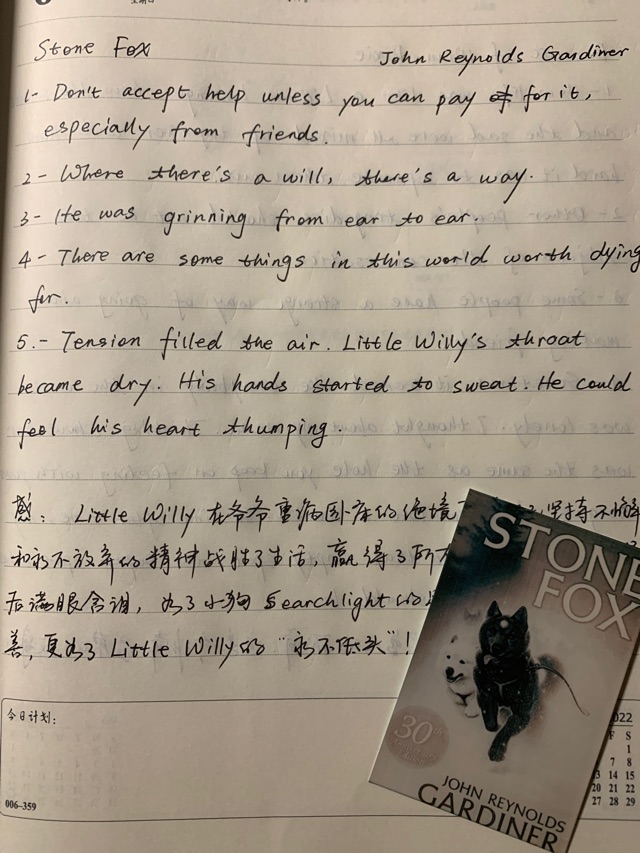 Stone Fox
John Reynolds Gardiner
1- Don't accept help unless you can pay for it,
especially from friends.
2- Where there's a will, there's a way.
3- He was grinning from ear to ear.
4- There are some things in this world worth dying
for.
5.- Tension filled the air. Little Willy's throat
became dry. His hands started to sweat. He could
feel his heart thumping.
感: Little Willy 在爷爷重病卧床的绝境 坚持不懈
和永不放弃的精神战胜了生活, 赢得了所
后满眼含泪, 为了小狗 Searchlight
善, 更为了 Little Willy 的 "永不低头"!
STONE
FOX
30th
JOHN REYNOLDS
GARDINER
今日计划:
006-359
2022
F S
1
7 8
13 14 15
20 21 22
27 28 29